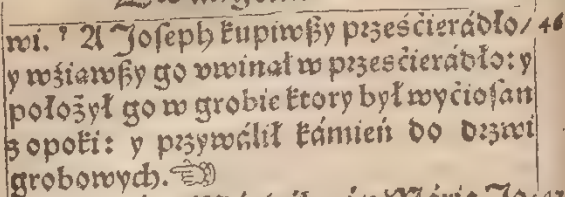 wi. ⁊ A Joseph kupiwßy prześćierádło/ 46
y wźiawßy go vwinął w prześćierádło: y
położył go w grobie ktory był wyćiosan
z opoki: y przywálił kámień do drzwi
grobowych. ☜